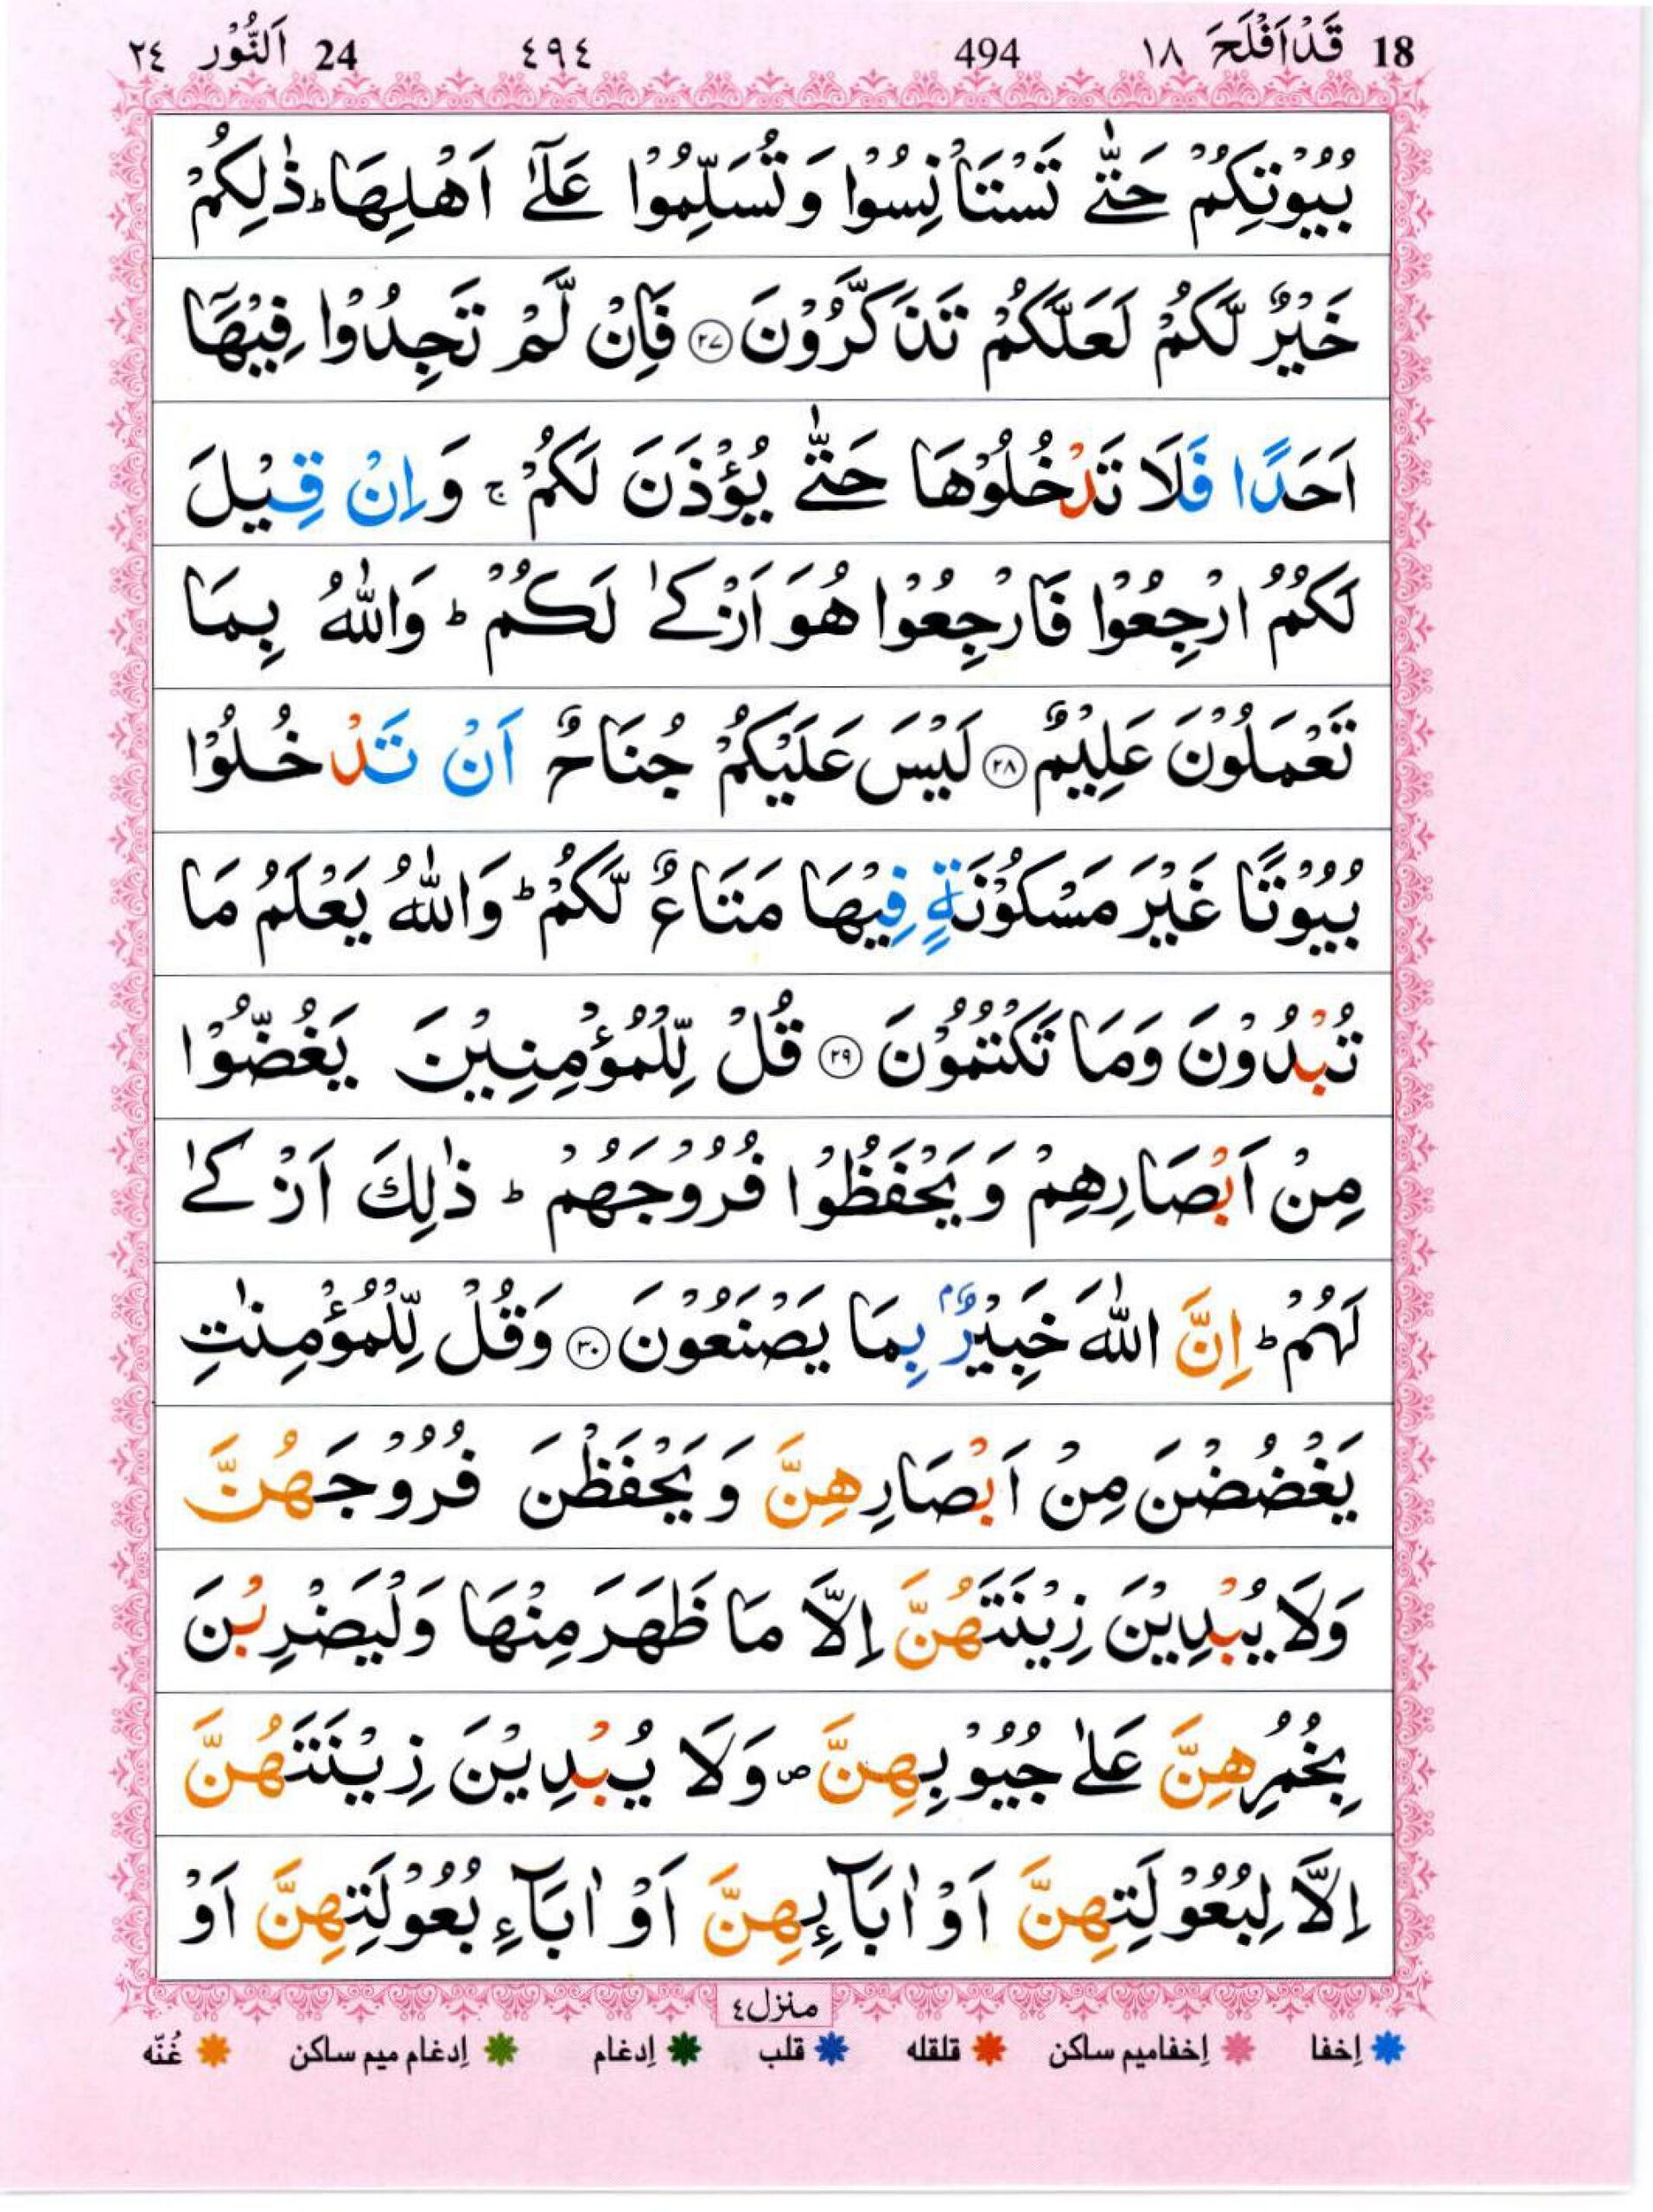 18 قَدْاَفْلَحَ ١٨ 494 ٤٩٤ 24 اَلنُّوْر ٢٤
بُيُوْتِكُمْ حَتّٰى تَسْتَاْنِسُوْا وَتُسَلِّمُوْا عَلٰٓى اَهْلِهَا ؕ ذٰلِكُمْ
خَيْرٌ لَّكُمْ لَعَلَّكُمْ تَذَكَّرُوْنَ ۝٢٧ فَاِنْ لَّمْ تَجِدُوْا فِيْهَاۤ
اَحَدًا فَلَا تَدْخُلُوْهَا حَتّٰى يُؤْذَنَ لَكُمْ ۚ وَاِنْ قِيْلَ
لَكُمُ ارْجِعُوْا فَارْجِعُوْا هُوَ اَزْكٰى لَكُمْ ؕ وَاللّٰهُ بِمَا
تَعْمَلُوْنَ عَلِيْمٌ ۝٢٨ لَيْسَ عَلَيْكُمْ جُنَاحٌ اَنْ تَدْخُلُوْا
بُيُوْتًا غَيْرَ مَسْكُوْنَةٍ فِيْهَا مَتَاعٌ لَّكُمْ ؕ وَاللّٰهُ يَعْلَمُ مَا
تُبْدُوْنَ وَمَا تَكْتُمُوْنَ ۝٢٩ قُلْ لِّلْمُؤْمِنِيْنَ يَغُضُّوْا
مِنْ اَبْصَارِهِمْ وَيَحْفَظُوْا فُرُوْجَهُمْ ؕ ذٰلِكَ اَزْكٰى
لَهُمْ ؕ اِنَّ اللّٰهَ خَبِيْرٌۢ بِمَا يَصْنَعُوْنَ ۝٣٠ وَقُلْ لِّلْمُؤْمِنٰتِ
يَغْضُضْنَ مِنْ اَبْصَارِهِنَّ وَيَحْفَظْنَ فُرُوْجَهُنَّ
وَلَا يُبْدِيْنَ زِيْنَتَهُنَّ اِلَّا مَا ظَهَرَ مِنْهَا وَلْيَضْرِبْنَ
بِخُمُرِهِنَّ عَلٰى جُيُوْبِهِنَّ ۪ وَلَا يُبْدِيْنَ زِيْنَتَهُنَّ
اِلَّا لِبُعُوْلَتِهِنَّ اَوْ اٰبَآئِهِنَّ اَوْ اٰبَآءِ بُعُوْلَتِهِنَّ اَوْ
منزل٤
إخفا إخفاميم ساكن قلقله قلب إدغام إدغام ميم ساكن غُنّه